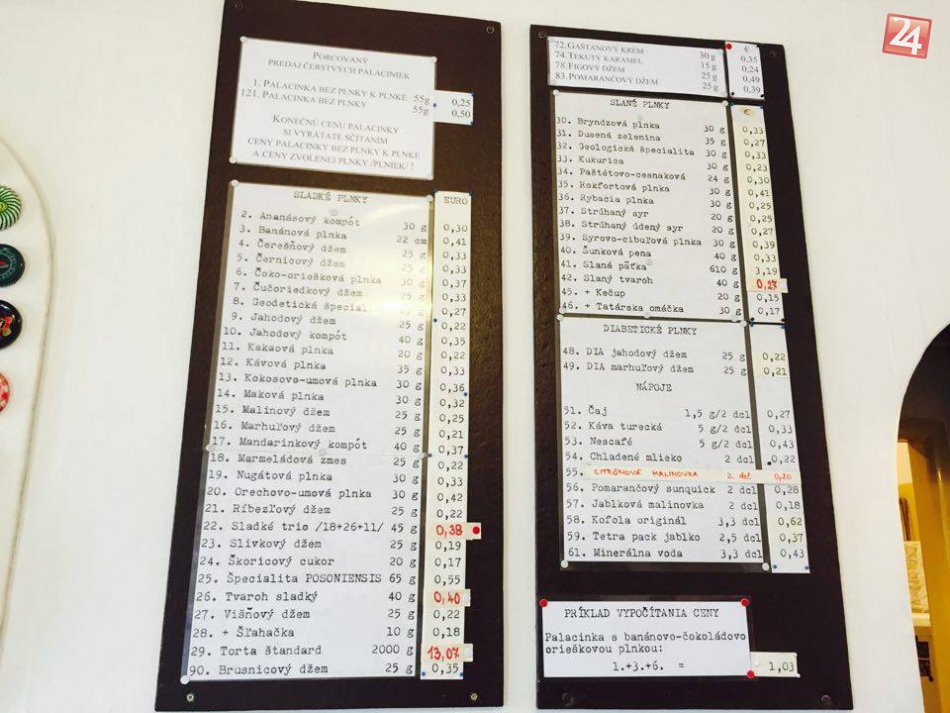 24
PORCOVANÝ
PREDAJ ČERSTVÝCH PALACINIEK
1. PALACINKA BEZ PLNKY K PLNKE 55g 0,25
121. PALACINKA BEZ PLNKY 55g 0,50
KONEČNÚ CENU PALACINKY
SI VYRÁTATE SČÍTANÍM
CENY PALACINKY BEZ PLNKY K PLNKE
A CENY ZVOLENEJ PLNKY /PLNIEK/ !
SLADKÉ PLNKY EURO
2. Ananásový kompót 30 g 0,30
3. Banánová plnka 22 cm 0,41
4. Čerešňový džem 25 g 0,33
5. Černicový džem 25 g 0,33
6. Čoko-oriešková plnka 30 g 0,37
7. Čučoriedkový džem 25 g 0,33
8. Geodetická špecial 33 g 0,27
9. Jahodový džem 25 g 0,22
10. Jahodový kompót 40 g 0,35
11. Kakaová plnka 20 g 0,22
12. Kávová plnka 35 g 0,33
13. Kokosovo-umová plnka 30 g 0,36
14. Maková plnka 30 g 0,32
15. Malinový džem 25 g 0,25
16. Marhuľový džem 25 g 0,21
17. Mandarinkový kompót 40 g 0,37
18. Marmeládová zmes 25 g 0,22
19. Nugátová plnka 30 g 0,33
20. Orechovo-umová plnka 30 g 0,42
21. Ríbezľový džem 25 g 0,22
22. Sladké trio /18+26+11/ 45 g 0,38
23. Slivkový džem 25 g 0,19
24. Škoricový cukor 20 g 0,17
25. Špecialita POSONIENSIS 65 g 0,55
26. Tvaroh sladký 40 g 0,40
27. Višňový džem 25 g 0,22
28. + Šľahačka 10 g 0,18
29. Torta štandard 2000 g 13,07
90. Brusnicový džem 25 g 0,35
72. GAŠTANOVÝ KRÉM 30 g 0,35
74. TEKUTÝ KARAMEL 15 g 0,24
78. FIGOVÝ DŽEM 25 g 0,49
83. POMARANČOVÝ DŽEM 25 g 0,39
€
SLANÉ PLNKY €
30. Bryndzová plnka 30 g 0,33
31. Dusená zelenina 35 g 0,27
32. Geologická špecialita 30 g 0,33
33. Kukurica 30 g 0,23
34. Paštétovo-cesnaková 24 g 0,30
35. Rokfortová plnka 30 g 0,41
36. Rybacia plnka 30 g 0,25
37. Strúhaný syr 20 g 0,25
38. Strúhaný údený syr 20 g 0,27
39. Syrovo-cibuľová plnka 30 g 0,39
40. Šunková pena 40 g 0,33
41. Slaná päťka 610 g 3,19
42. Slaný tvaroh 40 g 0,27
45. + Kečup 20 g 0,15
46. + Tatárska omáčka 30 g 0,17
DIABETICKÉ PLNKY
48. DIA jahodový džem 25 g 0,22
49. DIA marhuľový džem 25 g 0,21
NÁPOJE
51. Čaj 1,5 g/2 dcl 0,27
52. Káva turecká 5 g/2 dcl 0,33
53. Nescafé 5 g/2 dcl 0,43
54. Chladené mlieko 2 dcl 0,22
55. CITRÓNOVÁ MALINOVKA 2 dcl 0,20
56. Pomarančový sunquick 2 dcl 0,28
57. Jablková malinovka 2 dcl 0,18
58. Kofola originál 3,3 dcl 0,62
59. Tetra pack jablko 2,5 dcl 0,37
61. Minerálna voda 3,3 dcl 0,43
PRÍKLAD VYPOČÍTANIA CENY
Palacinka s banánovo-čokoládovo
orieškovou plnkou:
1.+3.+6. = 1,03